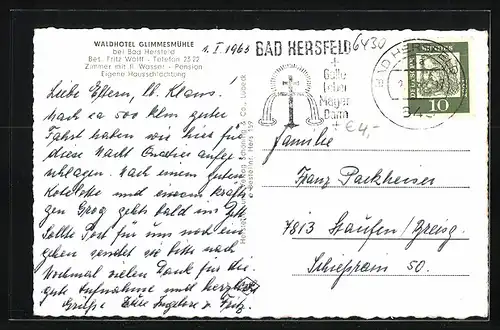 WALDHOTEL GLIMMESMÜHLE
bei Bad Hersfeld
Bes. Fritz Wolff - Telefon 25 22
Zimmer mit fl. Wasser - Pension
Eigene Hausschlachtung
1. I. 1963
BAD HERSFELD
6430
+
Galle
Leber
Magen
Darm
BAD HERSFELD
10
€ 4,-
Liebe Eltern, lb. Klaus!
Nach ca 500 klm guter
Fahrt haben wir hier für
diese Nacht Quartier aufge-
schlagen. Nach einem guten
Kotelette und einem kräfti-
gen Grog gehts bald ins Bett.
Sollte Post für uns noch ein-
gehen sendet sie bitte nach
Nochmal vielen Dank für die
gute Aufnahme und herzliche
Grüße Eure Ingelore u. Fritz.
Familie
Franz Parkheiser
7813 Staufen / Breisg.
Schießrain 50.